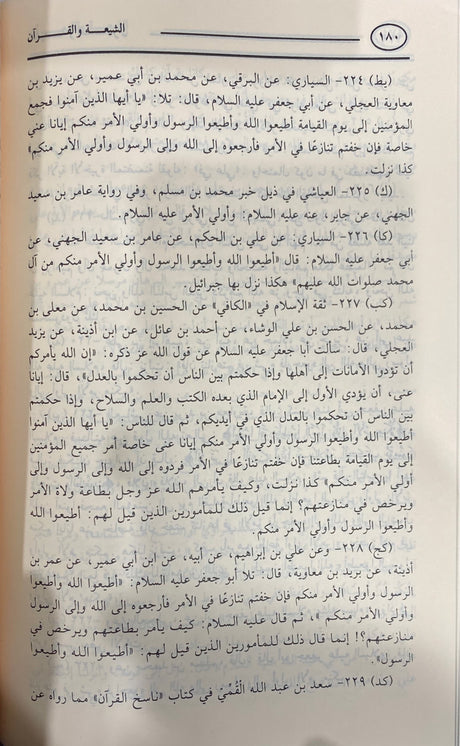 ١٨٠
الشيعة والقرآن
(يط) ٢٢٤- السياري: عن البرقي، عن محمد بن أبي عمير، عن يزيد بن
معاوية العجلي، عن أبي جعفر عليه السلام، قال: تلا: «يا أيها الذين آمنوا فجمع
المؤمنين إلى يوم القيامة أطيعوا الله وأطيعوا الرسول وأولي الأمر منكم إيانا عني
خاصة فإن خفتم تنازعًا في الأمر فأرجعوه إلى الله وإلى الرسول وأولي الأمر منكم»
كذا نزلت.
(ك) ٢٢٥- العياشي في ذيل خبر محمد بن مسلم، وفي رواية عامر بن سعيد
الجهني، عن جابر، عنه عليه السلام: وأولي الأمر عليه السلام.
(كا) ٢٢٦- السياري: عن علي بن الحكم، عن عامر بن سعيد الجهني، عن
أبي جعفر عليه السلام: قال «أطيعوا الله وأطيعوا الرسول وأولي الأمر منكم من آل
محمد صلوات الله عليهم» هكذا نزل بها جبرائيل.
(كب) ٢٢٧- ثقة الإسلام في «الكافي» عن الحسين بن محمد، عن معلى بن
محمد، عن الحسن بن علي الوشاء، عن أحمد بن عائل، عن ابن أذينة، عن يزيد
العجلي، قال: سألت أبا جعفر عليه السلام عن قول الله عز ذكره: «إن الله يأمركم
أن تؤدوا الأمانات إلى أهلها وإذا حكمتم بين الناس أن تحكموا بالعدل»، قال: إيانا
عنى، أن يؤدي الأول إلى الإمام الذي بعده الكتب والعلم والسلاح، وإذا حكمتم
بين الناس أن تحكموا بالعدل الذي في أيديكم، ثم قال للناس: «يا أيها الذين آمنوا
أطيعوا الله وأطيعوا الرسول وأولي الأمر منكم إيانا عنى خاصة أمر جميع المؤمنين
إلى يوم القيامة بطاعتنا فإن خفتم تنازعًا في الأمر فردوه إلى الله وإلى الرسول وإلى
أولي الأمر منكم» كذا نزلت، وكيف يأمرهم الله عز وجل بطاعة ولاة الأمر
ويرخص في منازعتهم؟ إنما قيل ذلك للمأمورين الذين قيل لهم: أطيعوا الله
وأطيعوا الرسول وأولي الأمر منكم.
(كج) ٢٢٨- وعن علي بن إبراهيم، عن أبيه، عن ابن أبي عمير، عن عمر بن
أذينة، عن بريد بن معاوية، قال: تلا أبو جعفر عليه السلام: «أطيعوا الله وأطيعوا
الرسول وأولي الأمر منكم فإن خفتم تنازعًا في الأمر فأرجعوه إلى الله وإلى الرسول
وأولي الأمر منكم»، ثم قال عليه السلام: كيف يأمر بطاعتهم ويرخص في
منازعتهم؟! إنما قال ذلك للمأمورين الذين قيل لهم: «أطيعوا الله وأطيعوا
الرسول».
(كد) ٢٢٩- سعد بن عبد الله القُمِّيّ في كتاب «ناسخ القرآن» مما رواه عن